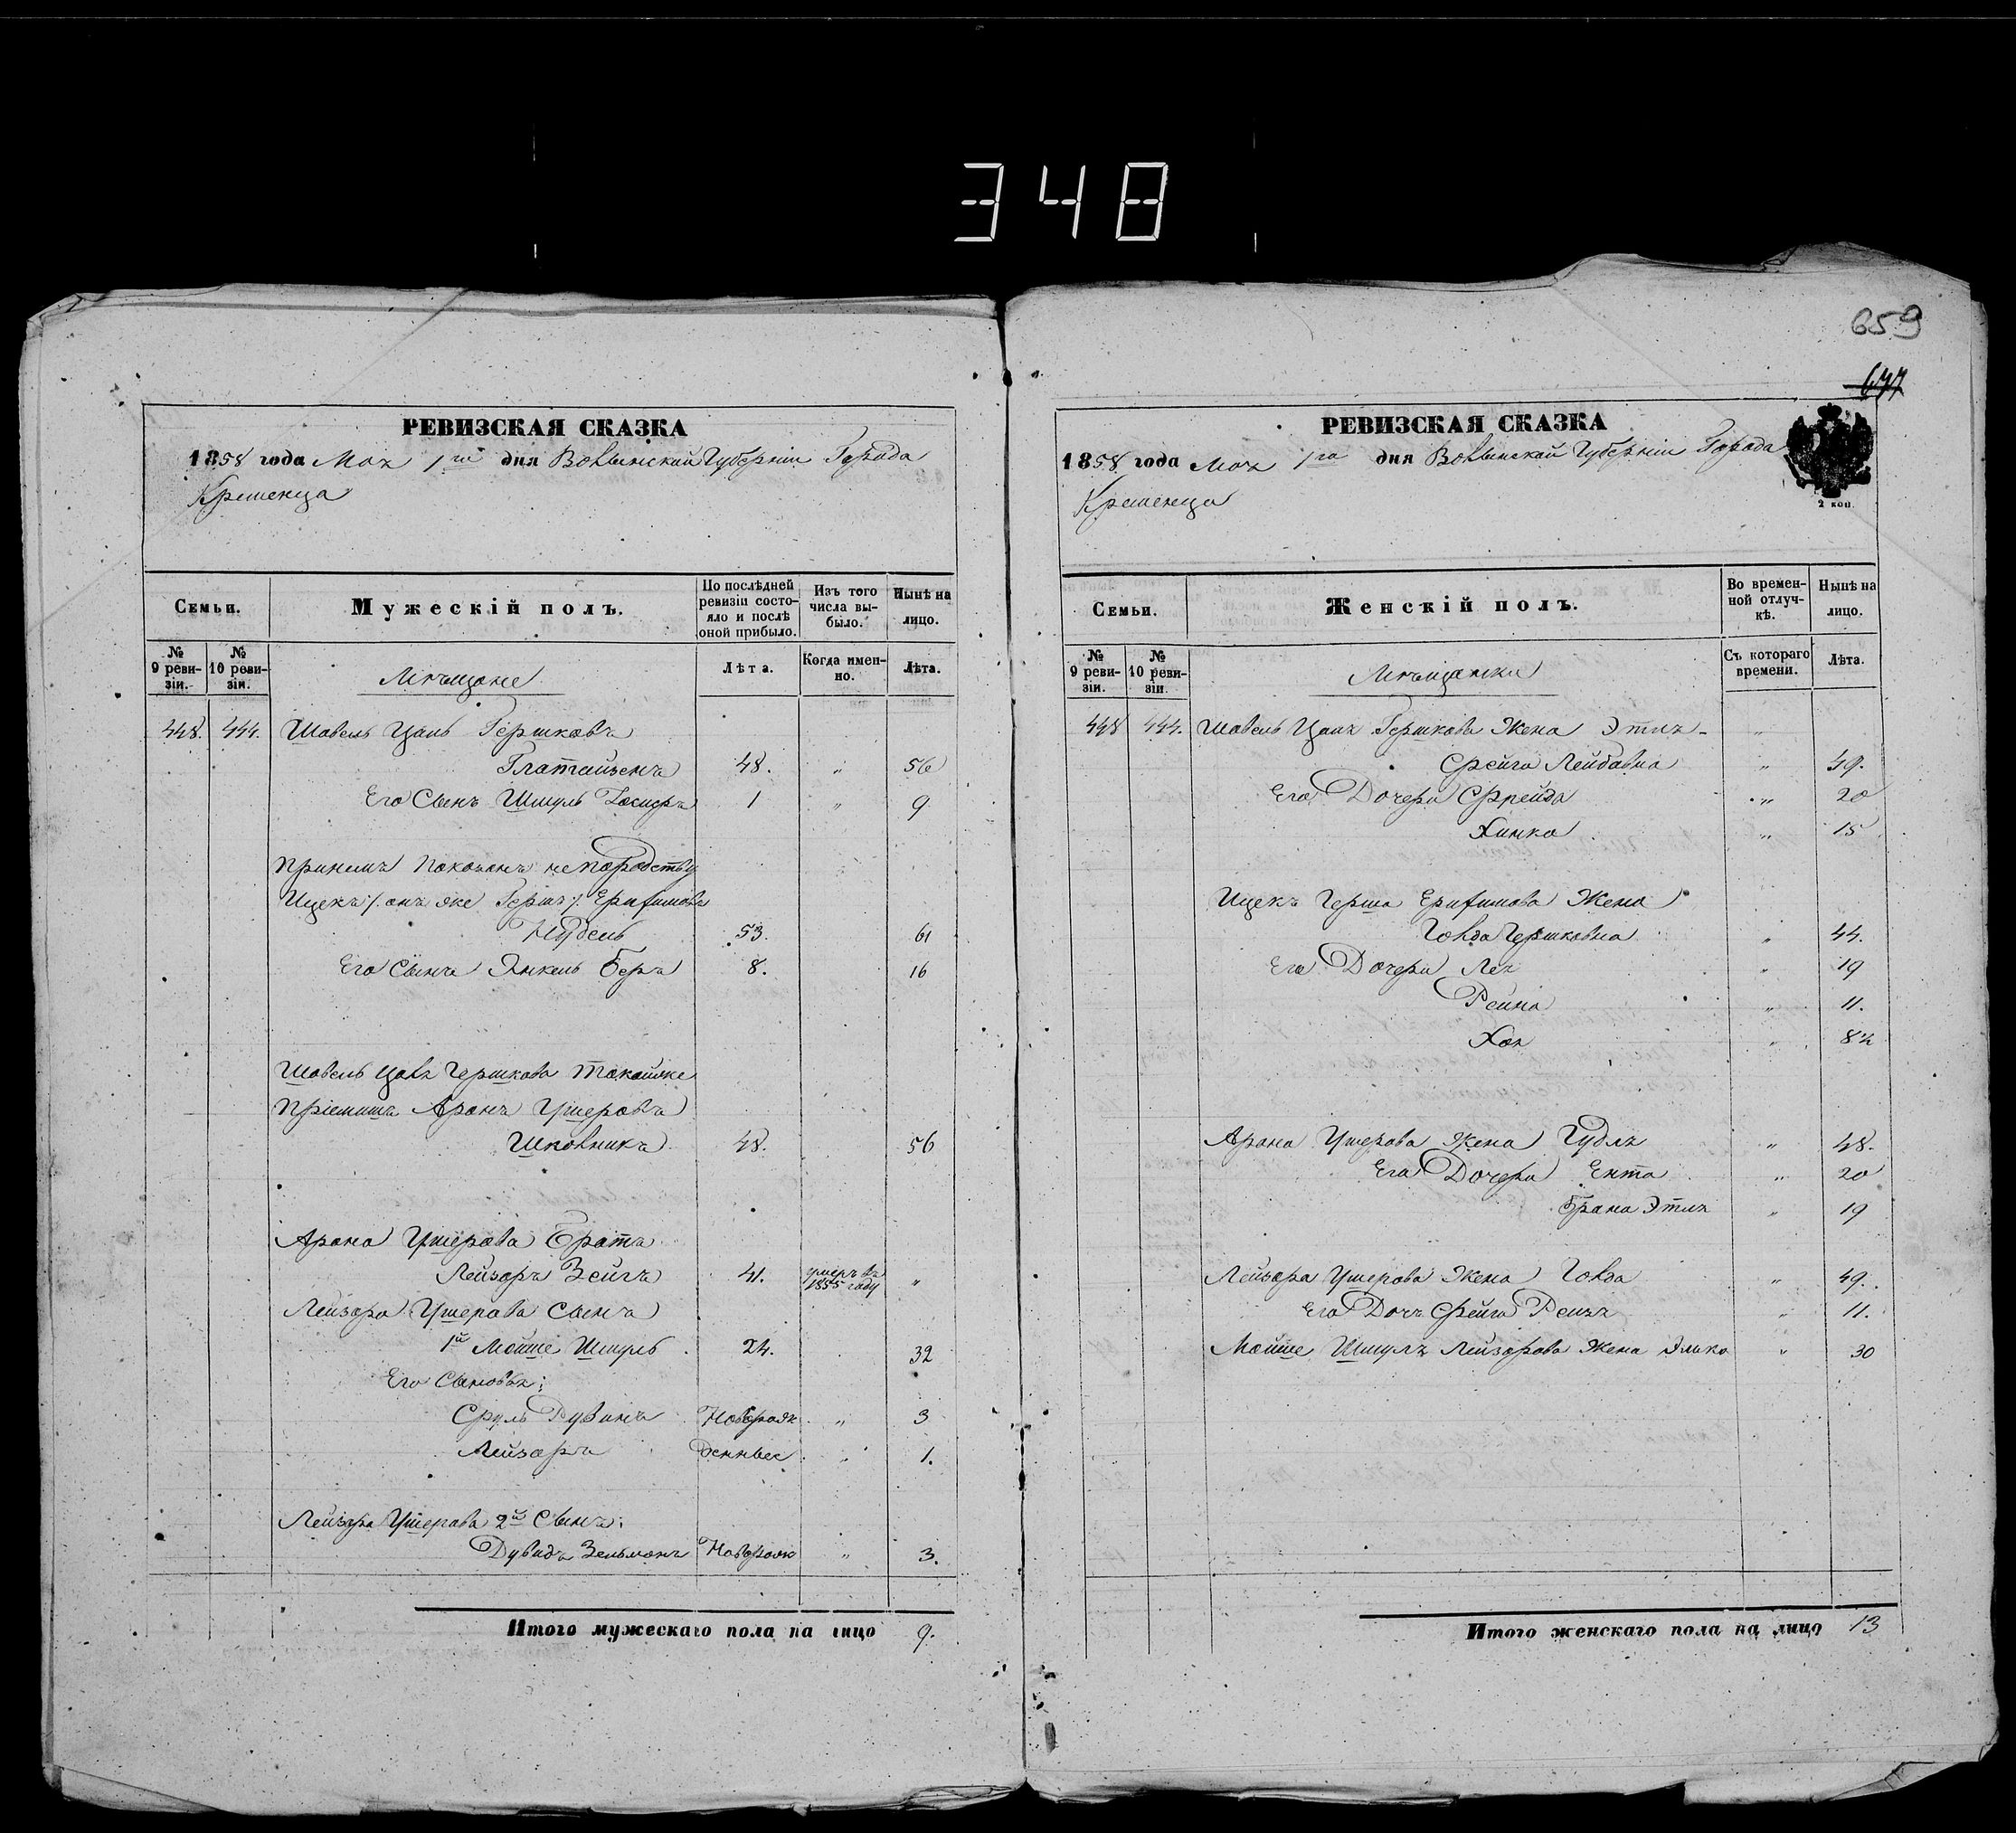 348
659
677
РЕВИЗСКАЯ СКАЗКА
1858 года Мая 1го дня Волынской Губерніи Города
Кременца
Семьи.
Мужескій полъ.
По послѣдней ревизіи состояло и послѣ оной прибыло.
Изъ того числа выбыло.
Нынѣ на лицо.
№ 9 ревизіи.
№ 10 ревизіи.
Мѣщане
Лѣта.
Когда именно.
Лѣта.
448. 444. Шавель Цаль Гершковъ
48. " 56
Его Сынъ Шмуль 1 " 9
При немъ показанъ не по родству
Ицекъ /. онъ же Гершъ ./
Нудель 53. 61
Его Сынъ Янкель Беръ 8. 16
Шавель Гершкова такойже
Пріемышъ Аронъ Ушеровъ
48. 56
Арона Ушерова Братъ
Лейзоръ Зейгъ 41. умеръ въ 1855 году "
Лейзора Ушерова Сынъ
1й Мойше Шмуль 24. 32
Его Сыновья:
Сруль Рувинъ Новорож " 3
Лейзоръ денные " 1.
Лейзора Ушерова 2й Сынъ:
Дувидъ Зельманъ Новорож " 3.
Итого мужескаго пола на лицо 9.
РЕВИЗСКАЯ СКАЗКА
1858 года Мая 1го дня Волынской Губерніи Города
Кременца
2 коп.
Семьи.
Женскій полъ.
Во временной отлучкѣ.
Нынѣ на лицо.
№ 9 ревизіи.
№ 10 ревизіи.
Мѣщанки
Съ котораго времени.
Лѣта.
448 444. Шавель Цаля Гершкова Жена Этля- "
Фейга Лейбовна " 49.
Его Дочери Фрейда " 20
Химка " 15
Ицекъ Герша Жена
Голда Гершковна " 44.
Его Дочери Лея " 19
Рейна " 11.
Хая " 8½
Арона Ушерова Жена Гудля " 48.
Его Дочери Ента " 20
Брана Этля " 19
Лейзора Ушерова Жена Голда " 49.
Его Дочь Фейга Рейзя " 11.
Мойше Шмуля Лейзорова Жена Элька " 30
Итого женскаго пола на лицо 13